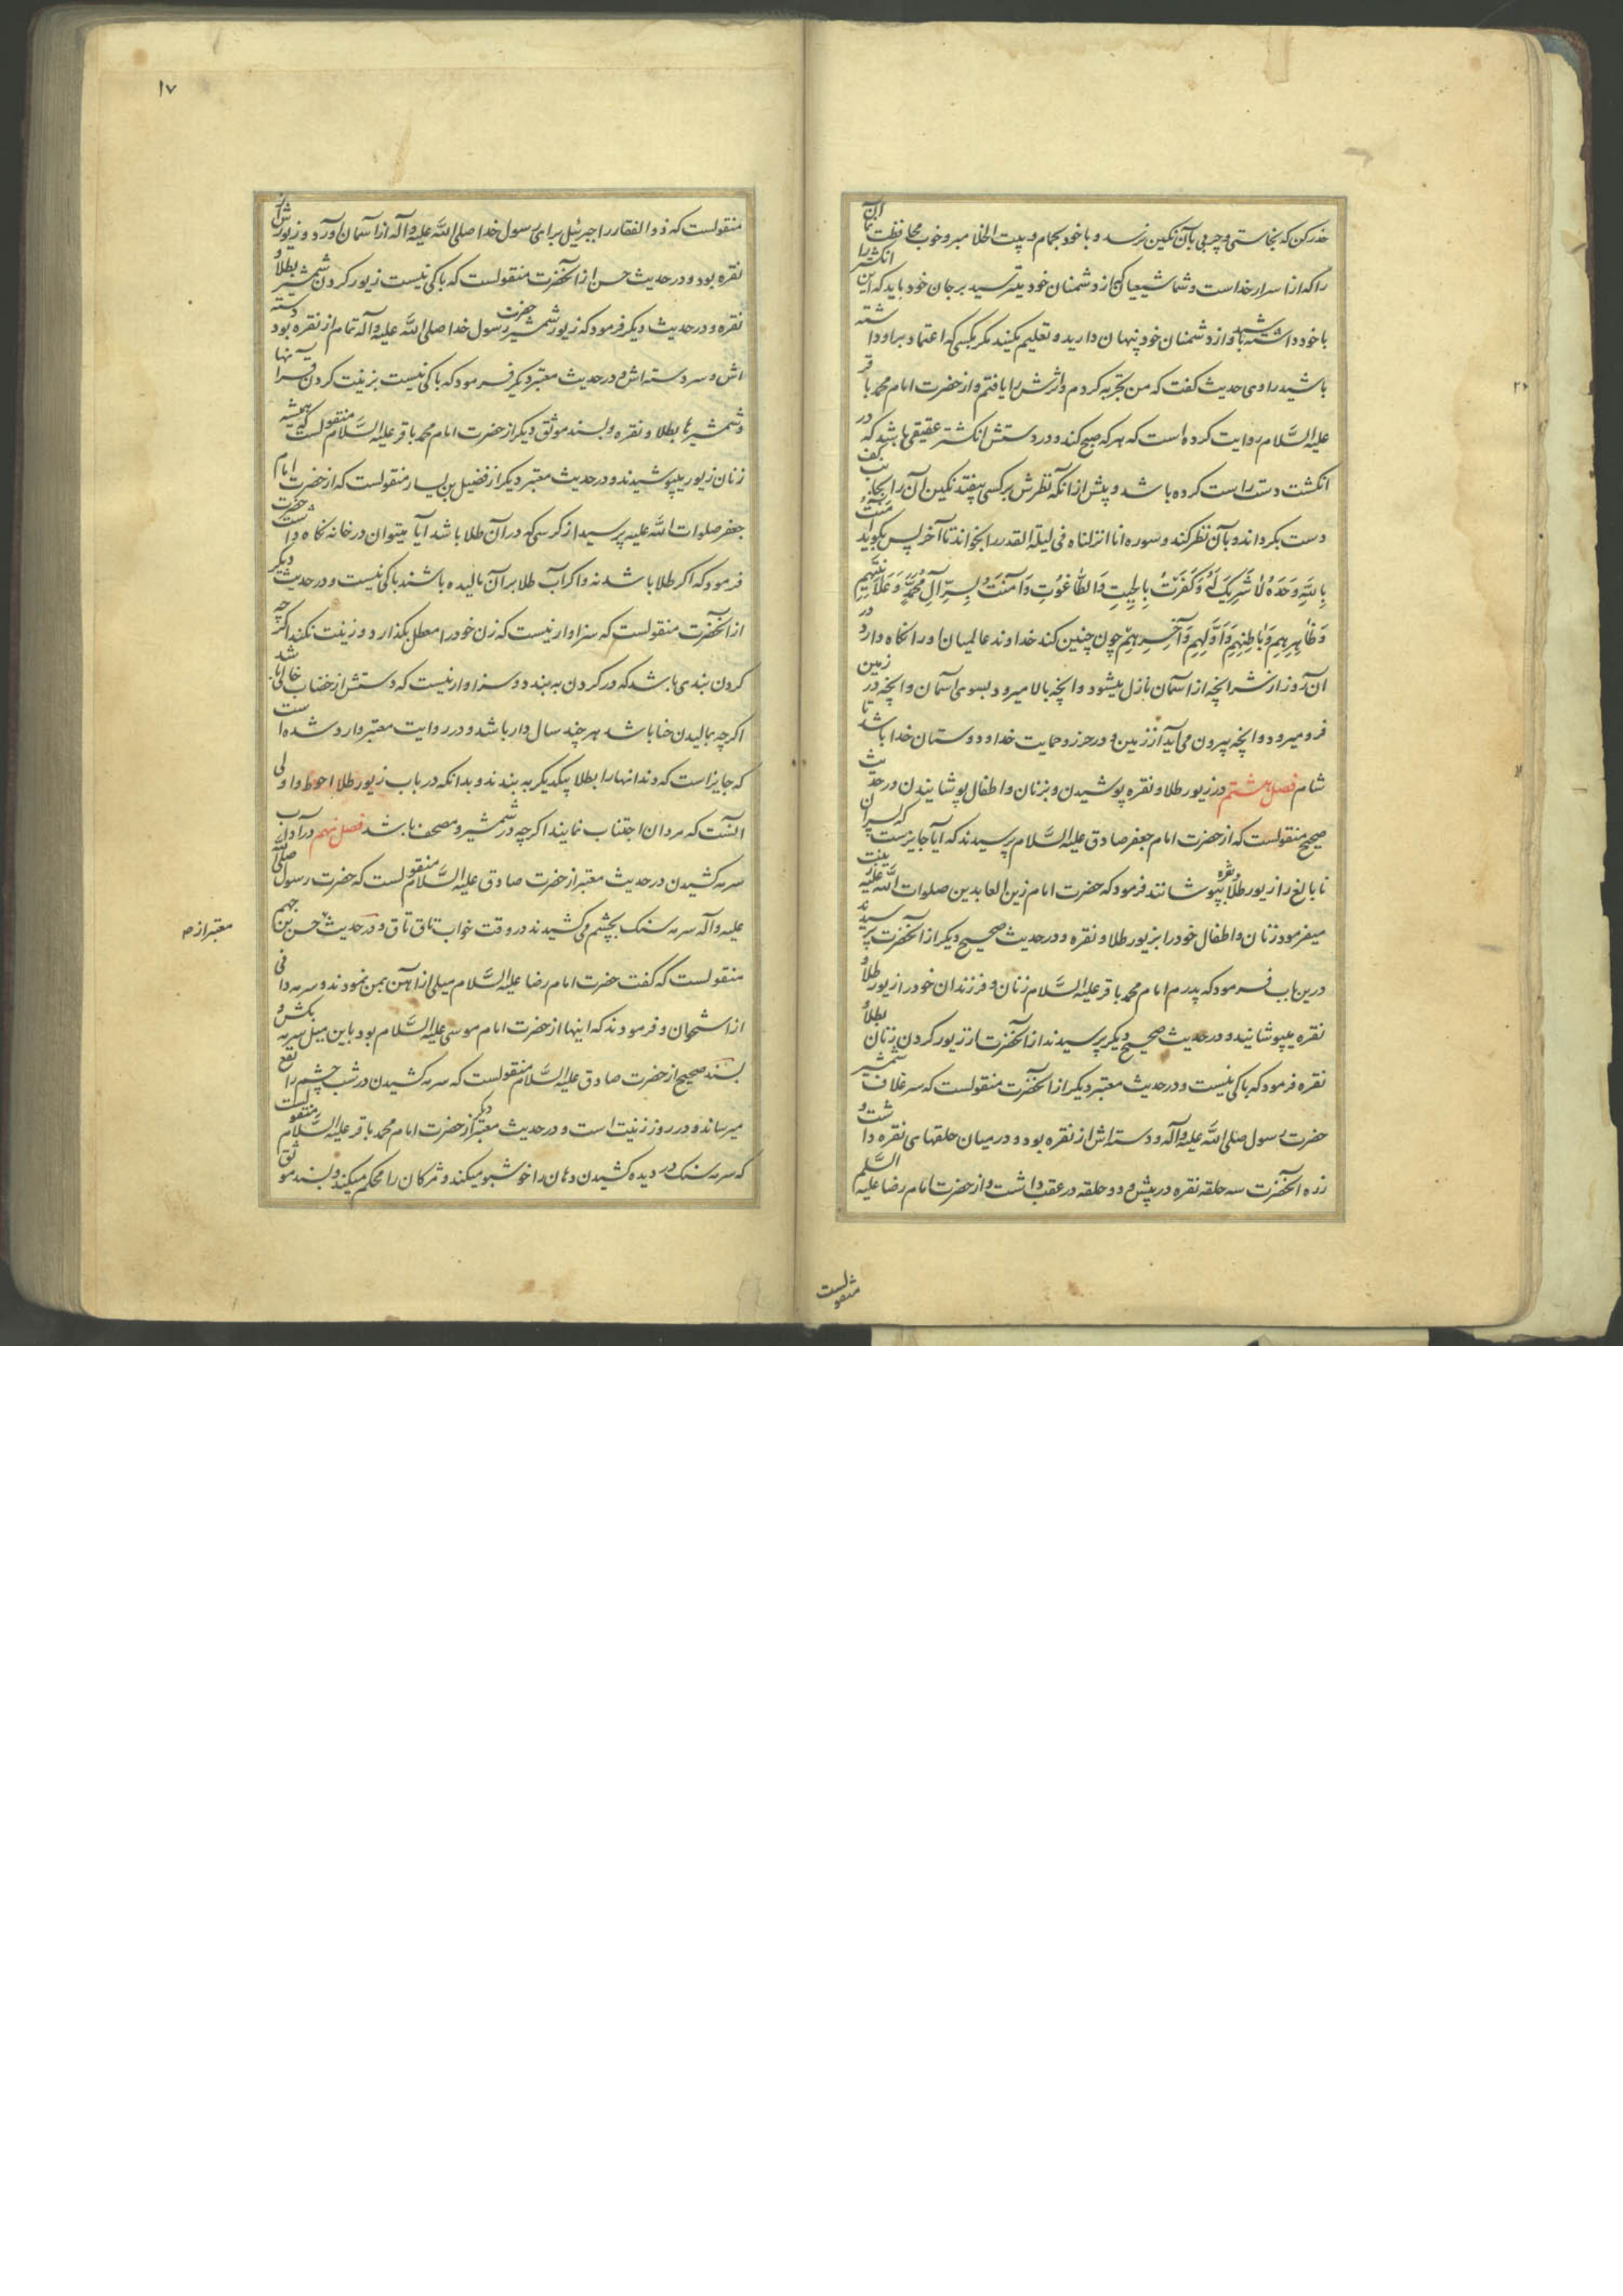 حذر کن که نجاستی و چربی بآن نکین نرسد و با خود بحمام و بیت الخلا مبر و خوب محافظت نما این
را که از اسرار خداست و شما شیعیان که از دشمنان خود میترسید بر جان خود باید که این انکشتر را
با خود داشته باشید و از دشمنان خود پنهان دارید و تعلیم مکنید مکر بکسی که اعتماد بر او داشته
باشید راوی حدیث کفت که من تجربه کردم و اثرش را یافتم و از حضرت امام محمد باقر
علیه السَّلام روایت کرده است که هر که صبح کند و در دستش انکشتر عقیقی باشد که در
انکشت دست راست کرده باشد و پیش از آنکه نظرش بر کسی بیفتد نکین آن را بجانب کف
دست بکرداند و بآن نظر کند و سوره انا انزلناه فی لیلة القدر را بخواند تا آخر پس بکوید آمَنْتُ
بِاللَّهِ وَحْدَهُ لَا شَرِیکَ لَهُ وَکَفَرْتُ بِالْجِبْتِ وَالطَّاغُوتِ وَآمَنْتُ بِسِرِّ آلِ مُحَمَّدٍ وَعَلَانِیَتِهِمْ
وَظَاهِرِهِمْ وَبَاطِنِهِمْ وَأَوَّلِهِمْ وَآخِرِهِمْ چون چنین کند خداوند عالمیان او را نکاه دارد در
آن روز از شر انچه از اسمان نازل میشود و انچه بالا میرود بسوی اسمان و انچه در زمین
فرو میرود و انچه بیرون می آید از زمین و در حرز و حمایت خدا و دوستان خدا باشد تا
شام فصل هشتم در زیور طلا و نقره پوشیدن و بزنان و اطفال پوشانیدن در حدیث
صحیح منقولست که از حضرت امام جعفر صادق علیه السَّلام پرسیدند که آیا جایزست که پسران
نابالغ را زیور طلا و نقره بپوشانند فرمود که حضرت امام زین العابدین صلوات اللّه علیه زینت
میفرمود زنان و اطفال خود را بزیور طلا و نقره و در حدیث صحیح دیکر از آنحضرت پرسیدند
درین باب فرمود که پدرم امام محمد باقر علیه السَّلام زنان و فرزندان خود را زیور طلا و
نقره میپوشانید و در حدیث صحیح دیکر پرسیدند از آنحضرت از زیور کردن زنان بطلا و
نقره فرمود که باکی نیست و در حدیث معتبر دیکر از آنحضرت منقولست که سر غلاف شمشیر
حضرت رسول صلی اللّه علیه وآله و دسته اش از نقره بود و در میان حلقهای نقره داشت و
زره آنحضرت سه حلقه نقره در پیش و دو حلقه در عقب داشت و از حضرت امام رضا علیه السَّلم
منقولست
۱۷
منقولست که ذو الفقار را جبرئیل برای رسول خدا صلی اللّه علیه وآله از آسمان آورد و زیورش از
نقره بود و در حدیث حسن از آنحضرت منقولست که باکی نیست زیور کردن شمشیر بطلا و
نقره و در حدیث دیکر فرمود که زیور شمشیر حضرت رسول خدا صلی اللّه علیه وآله تمام از نقره بود دسته
اش و سر دسته اش و در حدیث معتبر دیکر فرمود که باکی نیست بزینت کردن قرآنها
و شمشیرها بطلا و نقره و بسند موثق دیکر از حضرت امام محمد باقر علیه السَّلام منقولست که همیشه
زنان زیور میپوشیدند و در حدیث معتبر دیکر از فضیل بن یسار منقولست که از حضرت امام
جعفر صلوات اللّه علیه پرسید از کرسی که در آن طلا باشد آیا میتوان در خانه نکاه داشت حضرت
فرمود که اکر طلا باشد نه و اکر آب طلا بر آن مالیده باشند باکی نیست و در حدیث دیکر
از آنحضرت منقولست که سزاوار نیست که زن خود را معطل بکذارد و زینت نکند اکر چه
کردن بندی باشد که در کردن به بندد و سزاوار نیست که دستش از خضاب خالی باشد
اکر چه بمالیدن حنا باشد هر چند سال دار باشد و در روایت معتبر وارد شده است
که جایز است که دندانها را بطلا بیکدیکر به بندند و بدانکه در باب زیور طلا احوط و اولی
آنست که مردان اجتناب نمایند اکر چه در شمشیر و مصحف باشد فصل نهم در آداب
سرمه کشیدن در حدیث معتبر از حضرت صادق علیه السَّلام منقولست که حضرت رسول صلی اللّه
علیه وآله سرمه سنک بچشم می کشیدند در وقت خواب تاق تاق و در حدیث حسن بن جهم
معتبر از
منقولست که کفت حضرت امام رضا علیه السَّلام میلی از آهن بمن نمودند و سرمه دانی
از استخوان و فرمودند که اینها از حضرت امام موسی علیه السَّلام بود باین میل سرمه بکش و
بسند صحیح از حضرت صادق علیه السَّلام منقولست که سرمه کشیدن در شب چشم را نفع
میرساند و در روز زینت است و در حدیث معتبر دیکر از حضرت امام محمد باقر علیه السَّلام منقولست
که سرمه سنک در دیده کشیدن دهان را خوشبو میکند و مژکان را محکم میکند و بسند موثق